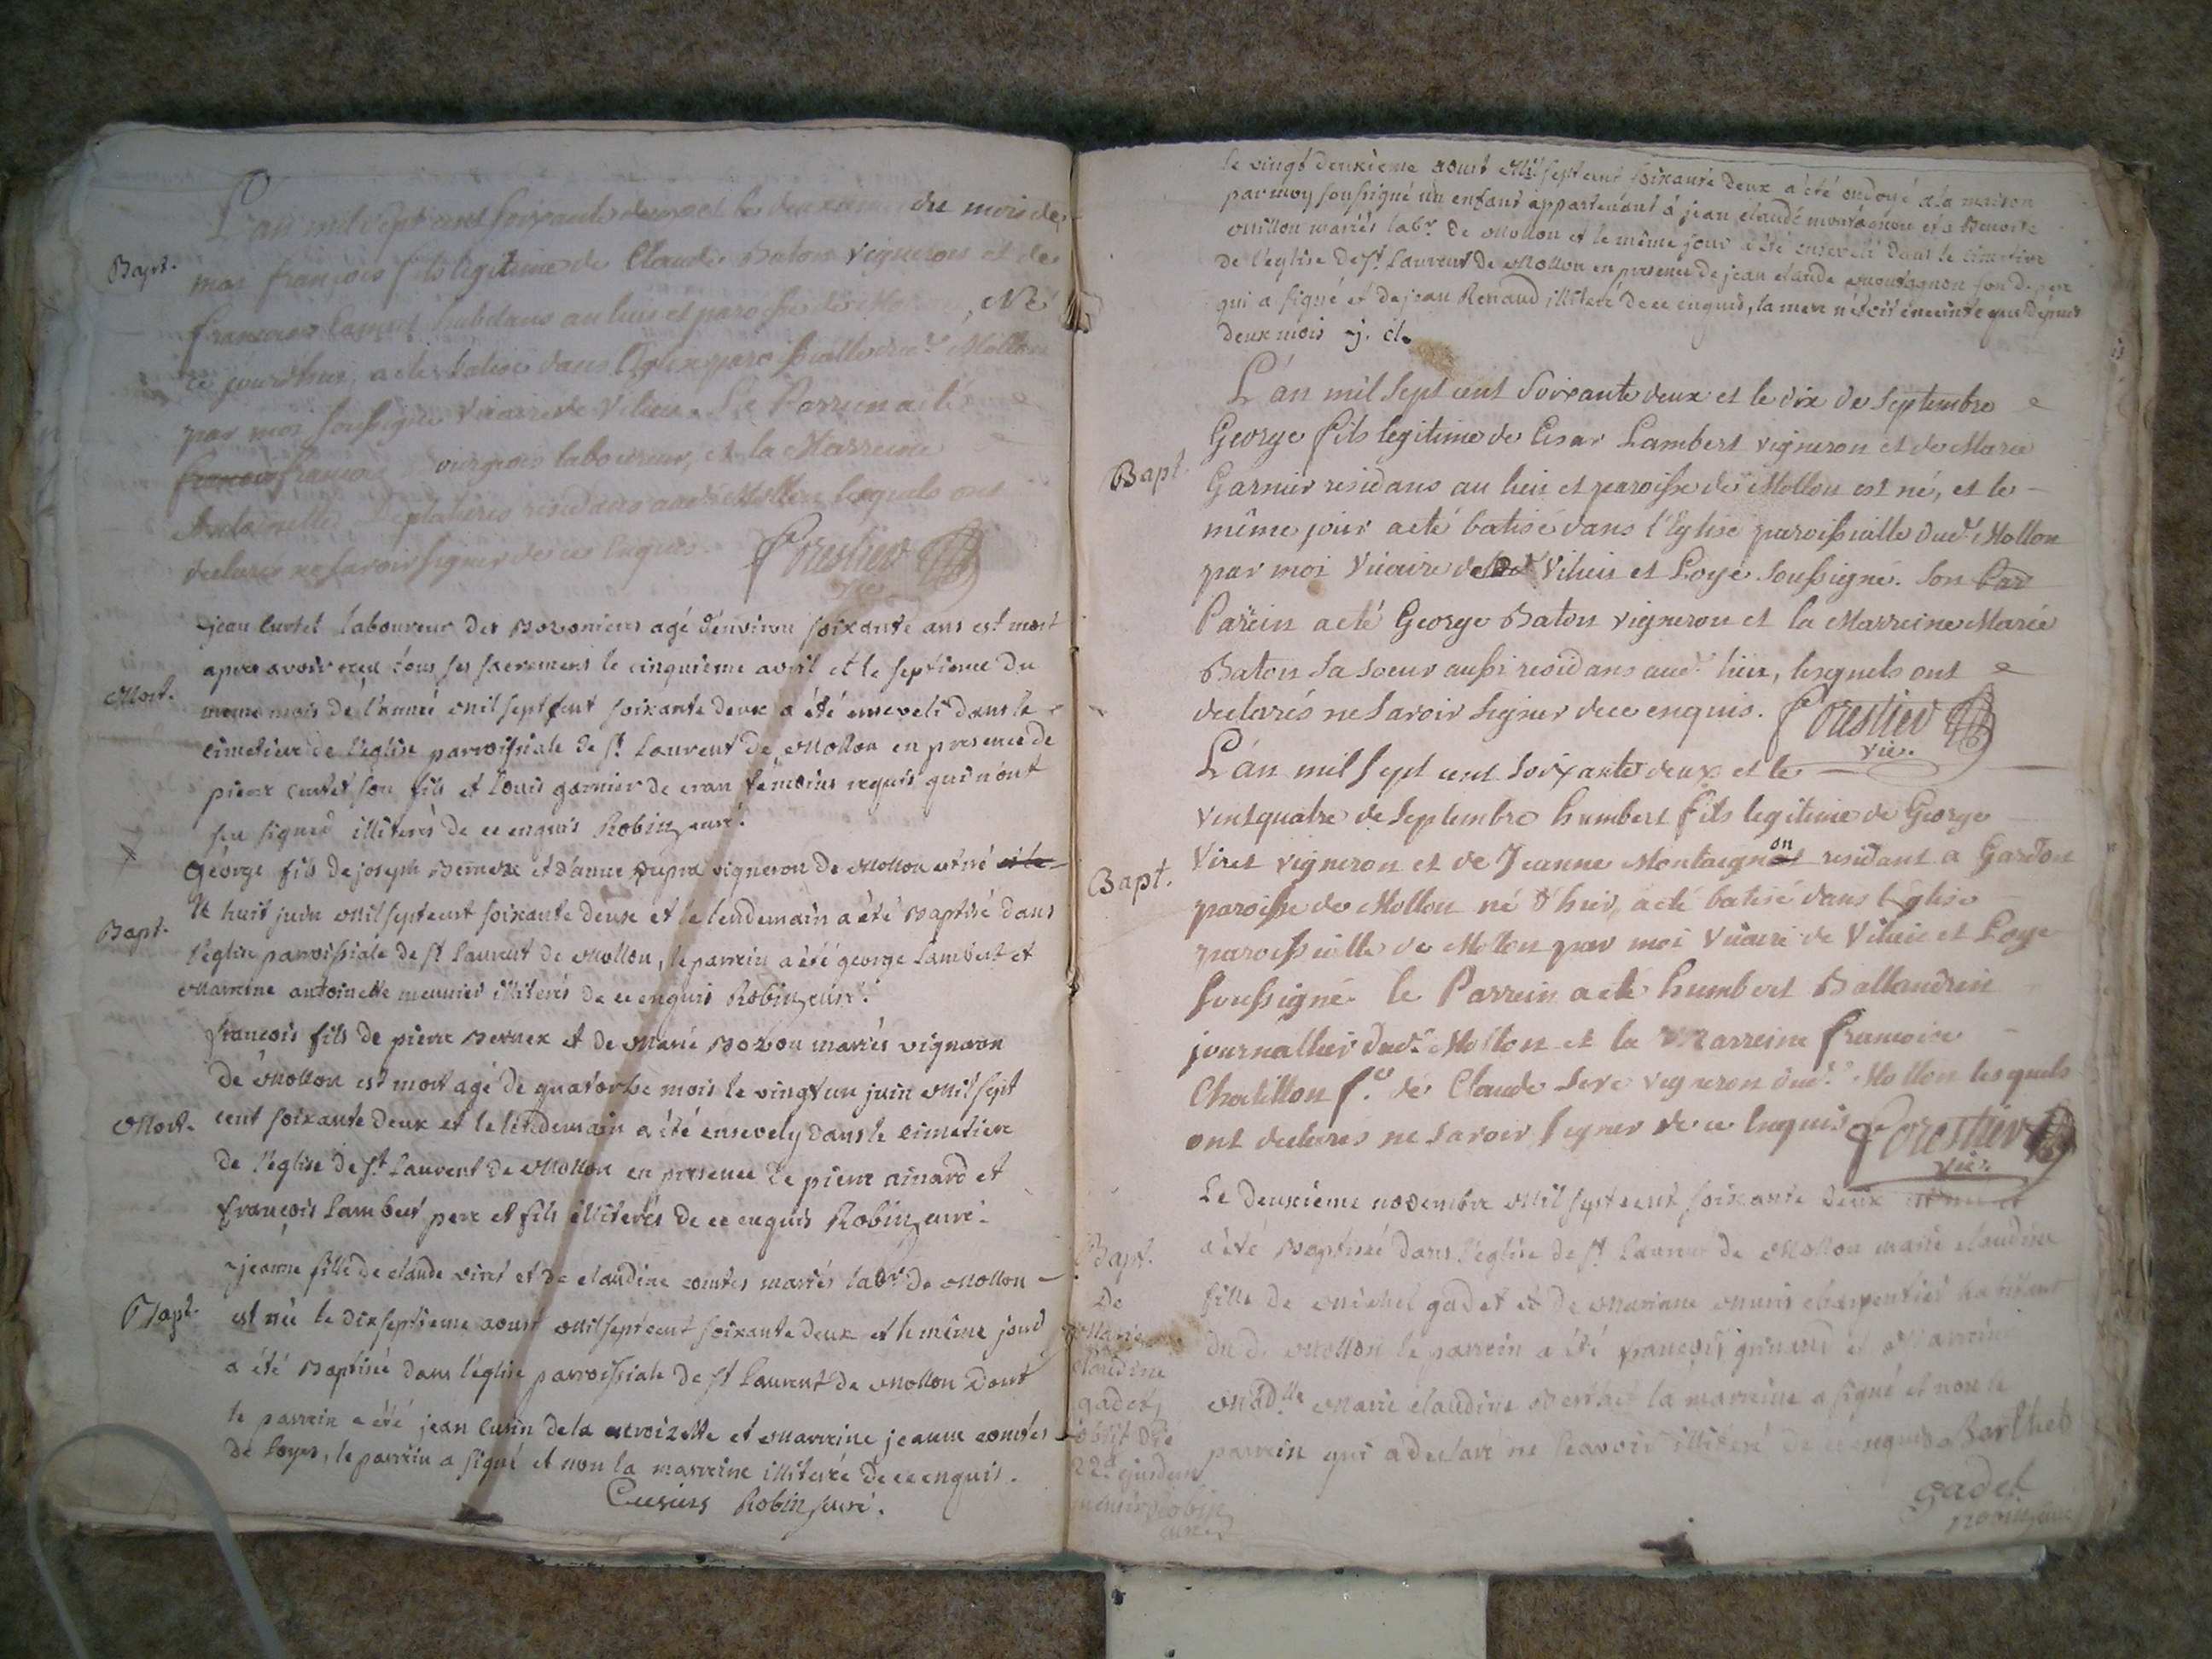 L'an mil sept cent soixante deux et le deuxieme du mois de
Bapt.
mai francois fils legitime de Claude Baton vigneron et de
francoise habitans au lieu et paroisse de Mollon, Né
ce jourdhui, a eté batisé dans l'Eglise paroissialle dud. Mollon
par moi soussigné vicaire de Viluis. Le Parrein a eté
francois francois laboureur, et la Marreine
Antoinette residans aud. Mollon lesquels ont
declarés ne savoir signer de ce enquis. Forestier
vic.
jean curtet laboureur des Bozoniers agé d'environ soixante ans est mort
apres avoir reçu tous ses sacremens le cinquieme avril et le septieme du
Mort.
meme mois de l'année mil sept cent soixante deux a été enseveli dans le
cimetiere de l'eglise parroissiale de St Laurent de Mollon en presence de
pierre curtet son fils et Louis garnier de cran témoins requis qui n'ont
signer illiterés de ce enquis Robin, curé.
George fils de joseph et d'anne Dupra vigneron de Mollon est né et le
le huit juin mil sept cent soixante deux et le lendemain a été Baptisé dans
Bapt.
l'eglise parroissiale de St Laurent de Mollon, le parrein a été george Lambert et
Marreine antoinette meunier illiterés de ce enquis Robin, curé.
françois fils de pierre Bernex et de Marie Bozon mariés vigneron
de Mollon est mort agé de quatorze mois le vingt un juin Mil sept
Mort.
cent soixante deux et le lendemain a été ensevely dans le cimetiere
de l'eglise de St Laurent de Mollon en presence de pierre ainard et
françois Lambert pere et fils illiterés de ce enquis Robin, curé.
jeanne fille de claude viret et de claudine comtes mariés labr de Mollon
Bapt.
est née le dixseptieme aoust Mil sept cent soixante deux et le même jour
a été Baptisée dans l'église parroissiale de St Laurent de Mollon Dont
le parrein a été jean cusin de la croizette et Marreine jeanne comtes
de Loyes, le parrein a signé et non la marreine illiterée de ce enquis.
Cusins Robin, curé.
le vingt deuxieme aoust Mil sept cent soixante deux a été ondoyé à la maison
par moy soussigné un enfant appartenant à jean claude montagnon et a Benoite
Millon mariés labr. de Mollon et le même jour a été enseveli dans le cimetiere
de l'église de St Laurent de Mollon en presence de jean claude Montagnon son d. pere
qui a signé et de jean Renaud illiteré de ce enquis, la mere n'étoit enceinte que depuis
deux mois
L'an mil sept cent soixante deux et le dix de septembre
George fils legitime de Cesar Lambert vigneron et de Marie
Bapt.
Garnier residans au lieu et paroisse de Mollon est né, et le
même jour a eté batisé dans l'Eglise paroissialle dud. Mollon
par moi Vicaire de Viluis et Loye soussigné. Son Par
Parein a eté George Baton vigneron et la Marreine Marie
Baton sa soeur aussi residans aud. lieu, lesquels ont
declarés ne savoir signer de ce enquis. Forestier
vic.
L'an mil sept cent soixante deux et le
vint quatre de septembre humbert fils legitime de George
Viret vigneron et de Jeanne Montaignon residant a Gardon
Bapt.
paroisse de Mollon né d'hier, a eté batisé dans l'Eglise
paroissialle de Mollon par moi Vicaire de Viluis et Loye
soussigné. le Parrein a eté humbert Ballandrin
journallier dud. Mollon et la Marreine francoise
Chatillon f.e de Claude Seve vigneron dud. Mollon lesquels
ont declarés ne savoir signer de ce enquis Forestier
vic.
Le deuxieme novembre Mil sept cent soixante deux est née et
a été Baptisée dans l'eglise de St Laurent de Mollon marie claudine
Bapt.
De
Marie
claudine
gadet,
obiit die
22a ejusdem
Robin
curé
fille de Michel gadet et de Marianne charpentier habitant
dud. Mollon le parrein a été françois et Marreine
Madlle Marie claudine la marreine a signé et non le
parrein qui a declaré ne sçavoir illiteré de ce enquis Barthet
gadet
Robin, curé